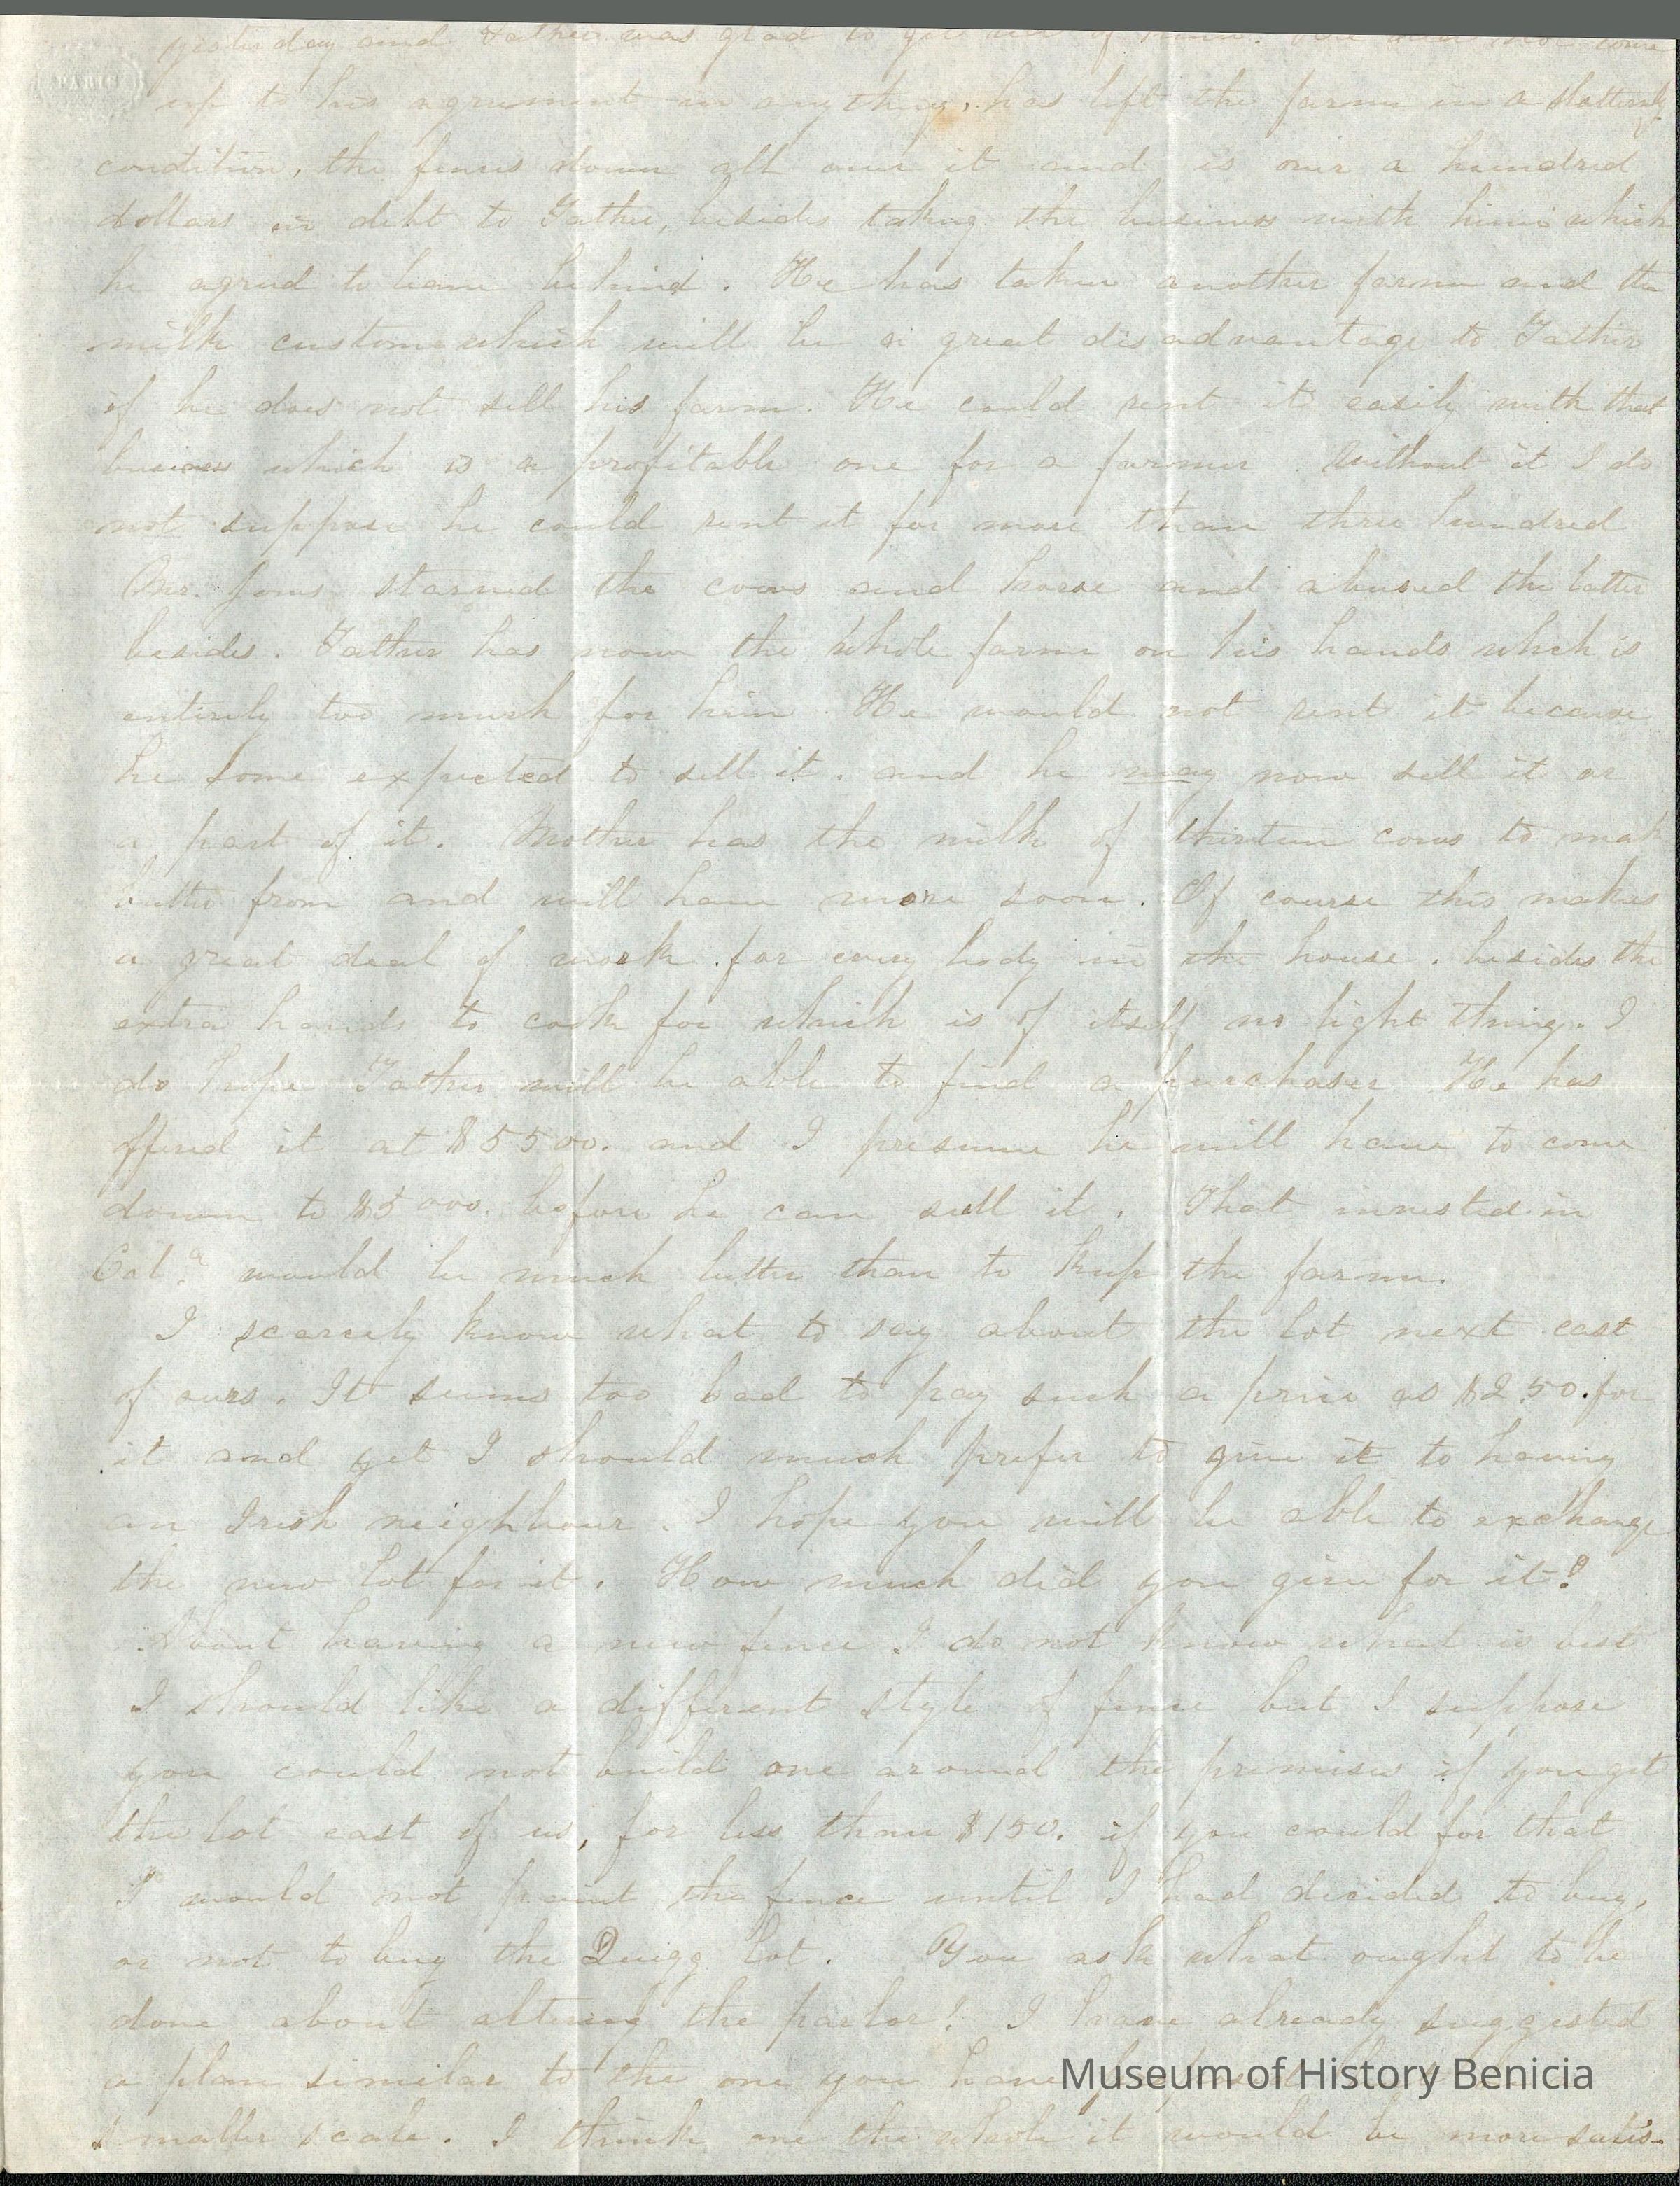 yesterday and Father was glad to get rid of him. He did not come
up to his agreement in any thing, has left the farm in a slatternly
condition, the fences down all over it and is over a hundred
dollars in debt to Father, besides taking the business with him which
he agreed to leave behind. He has taken another farm and the
milk custom which will be a great disadvantage to Father
if he does not sell his farm. He could rent it easily with that
business which is a profitable one for a farmer. Without it I do
not suppose he could rent it for more than three hundred
Mr. Jones starved the cows and horse and abused the latter
besides. Father has now the whole farm on his hands which is
entirely too much for him. He would not rent it because
he some expected to sell it. and he may now sell it or
a part of it. Mother has the milk of thirteen cows to make
butter from and will have more soon. Of course this makes
a great deal of work for every body in the house. besides the
extra hands to cook for which is of itself no light thing. I
do hope Father will be able to find a purchaser. He has
offered it at $5500. and I presume he will have to come
down to $5000. before he can sell it. That invested in
Cal.a would be much better than to keep the farm.
I scarcely know what to say about the lot next east
of ours. It seems too bad to pay such a price as $250. for
it and yet I should much prefer to give it to having
an Irish neighbour. I hope you will be able to exchange
the new lot for it. How much did you give for it?
About having a new fence I do not know what is best
I should like a different style of fence but I suppose
you could not build one around the premises if you get
the lot east of us, for less than $150. if you could for that
I would not paint the fence until I had decided to buy,
or not to buy the Quigg lot. You ask what ought to be
done about altering the parlor? I have already suggested
a plan similar to the one you have
smaller scale. I think one the whole it would be more satis-
Museum of History Benicia